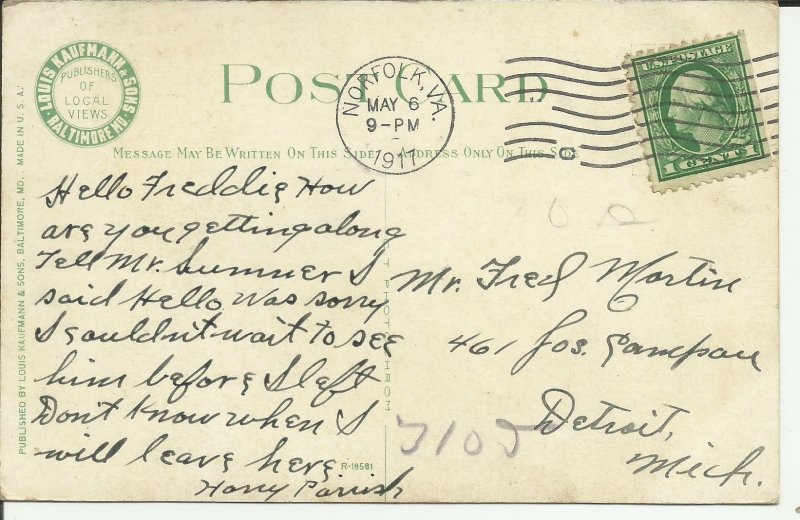 LOUIS KAUFMANN & SONS
BALTIMORE MD.
PUBLISHERS
OF
LOCAL
VIEWS
POST CARD
NORFOLK, VA.
MAY 6
9-PM
1917
U.S. POSTAGE
1 CENT 1
MESSAGE MAY BE WRITTEN ON THIS SIDE
ADDRESS ONLY ON THIS SIDE
PUBLISHED BY LOUIS KAUFMANN & SONS, BALTIMORE, MD. MADE IN U.S.A.
Hello Freddie How
are you getting along
Tell Mr. Sumner I
said Hello Was sorry
I couldn't wait to see
him before I left
Don't Know when I
will leave here
Harry Parrish
R-18581
Mr. Fred Martin
461 Jos. Campau
Detroit,
Mich.
7105